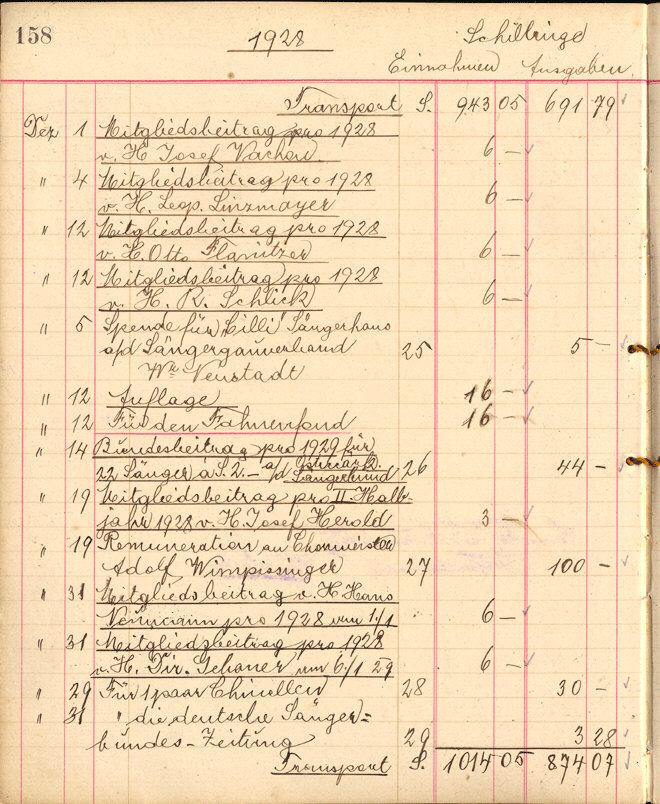 158 1928 Schillinge
Einnahmen Ausgaben
Transport S. 943 05 691 79
Dez 1 Mitgliedsbeitrag pro 1928
v. H. Josef Vachou 6 —
" 4 Mitgliedsbeitrag pro 1928
v. H. Leop. Linzmayer 6 —
" 12 Mitgliedsbeitrag pro 1928
v. H. Otto Flanitzer 6 —
" 12 Mitgliedsbeitrag pro 1928
v. H. R. Schlick 6 —
" 5 Spende für "Cilli" Sängerhaus
a/d Sängergauverband 25 5 —
Wr. Neustadt
" 12 Auflage 16 —
" 12 Für den Fahnenfond 16 —
" 14 Bundesbeitrag pro 1929 für
22 Sänger a S. 2.– a/d Sängerbund 26 44 —
" 19 Mitgliedsbeitrag pro II. Halb-
jahr 1928 v. H. Josef Herold 3 —
" 19 Remuneration an Chormeister
Adolf Wimpissinger 27 100 —
" 31 Mitgliedsbeitrag v. H. Hans
Neumann pro 1928 vom 1./1 6 —
" 31 Mitgliedsbeitrag pro 1928
v. H. Dir. Schaner am 6./1 29 6 —
" 29 Für 1 paar Chinellen 28 30 —
" 31 " die deutsche Sänger=
bundes-Zeitung 29 3 28
Transport S. 1014 05 874 07